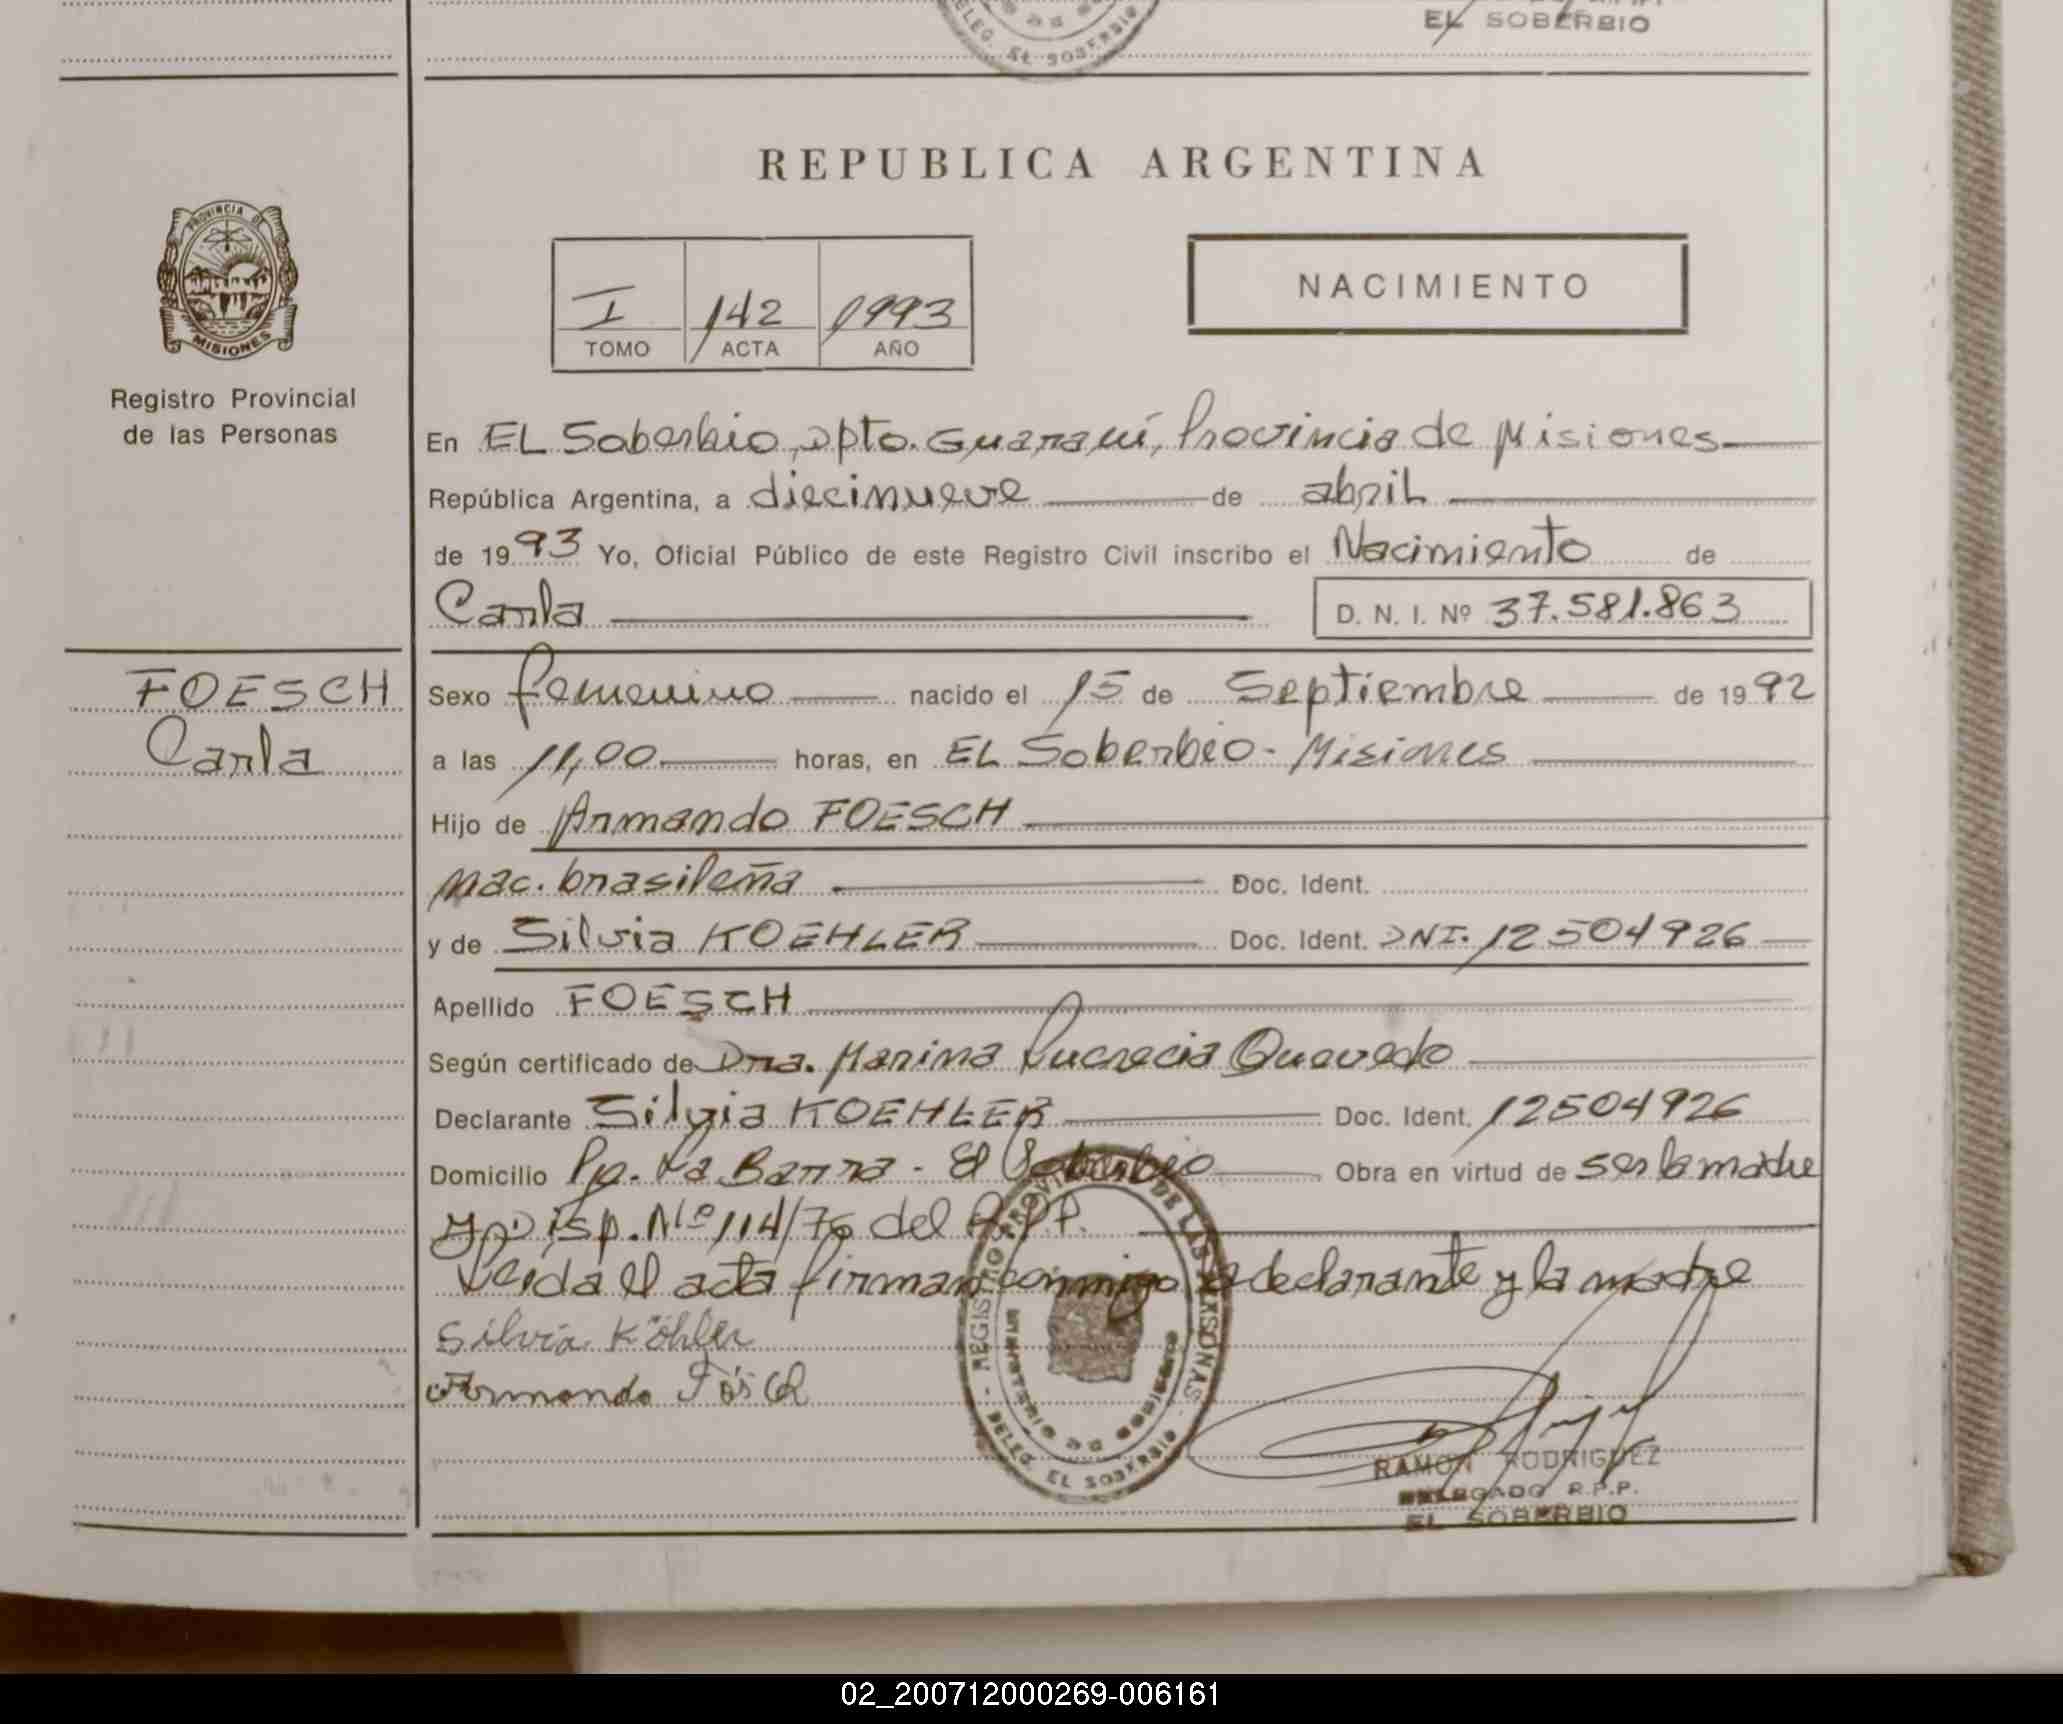 EL SOBERBIO
DELEG. EL SOBERBIO
REPUBLICA ARGENTINA
PROVINCIA DE
MISIONES
Registro Provincial
de las Personas
I 142 1993
TOMO ACTA AÑO
NACIMIENTO
En EL Soberbio, Dpto. Guaraní, Provincia de Misiones
República Argentina, a diecinueve de abril
de 1993 Yo, Oficial Público de este Registro Civil inscribo el Nacimiento de
Carla D. N. I. Nº 37.581.863
FOESCH
Carla
Sexo femenino nacido el 15 de Septiembre de 1992
a las 11,00 horas, en EL Soberbio - Misiones
Hijo de Armando FOESCH
nac. brasileña Doc. Ident.
y de Silvia KOEHLER Doc. Ident. DNI. 12504926
Apellido FOESCH
Según certificado de Dra. Marina Lucrecia Quevedo
Declarante Silvia KOEHLER Doc. Ident. 12504926
Domicilio Pje. La Barra - El Soberbio Obra en virtud de ser la madre
y Disp. Nº 114/76 del R.P.P.
Leida el acta firman conmigo el declarante y la madre
Silvia Köhler
Armando Fösch
REGISTRO PROVINCIAL DE LAS PERSONAS
MINISTERIO DE GOBIERNO
DELEG. EL SOBERBIO
RAMON RODRIGUEZ
DELEGADO R.P.P.
EL SOBERBIO
02_200712000269-006161